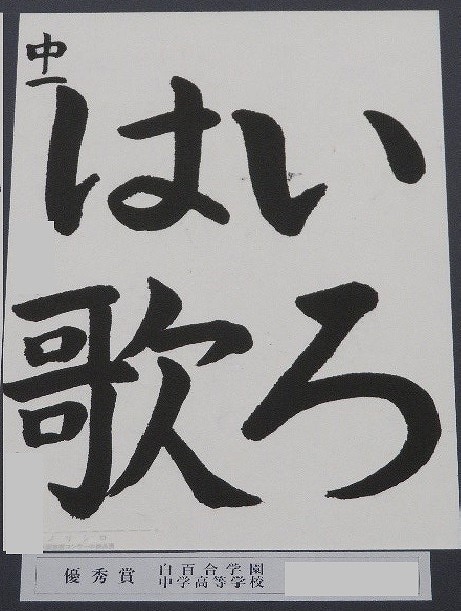 いろ
は歌
中一
優秀賞 白百合学園
中学高等学校